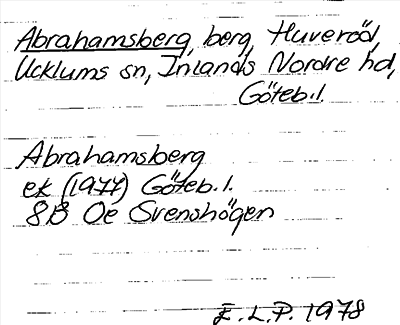 Abrahamsberg, berg, Huveröd,
Ucklums sn, Inlands Nordre hd,
Göteb.l.
Abrahamsberg
ek (1977) Göteb. l.
8B Oe Svenshögen
E. L. P. 1978